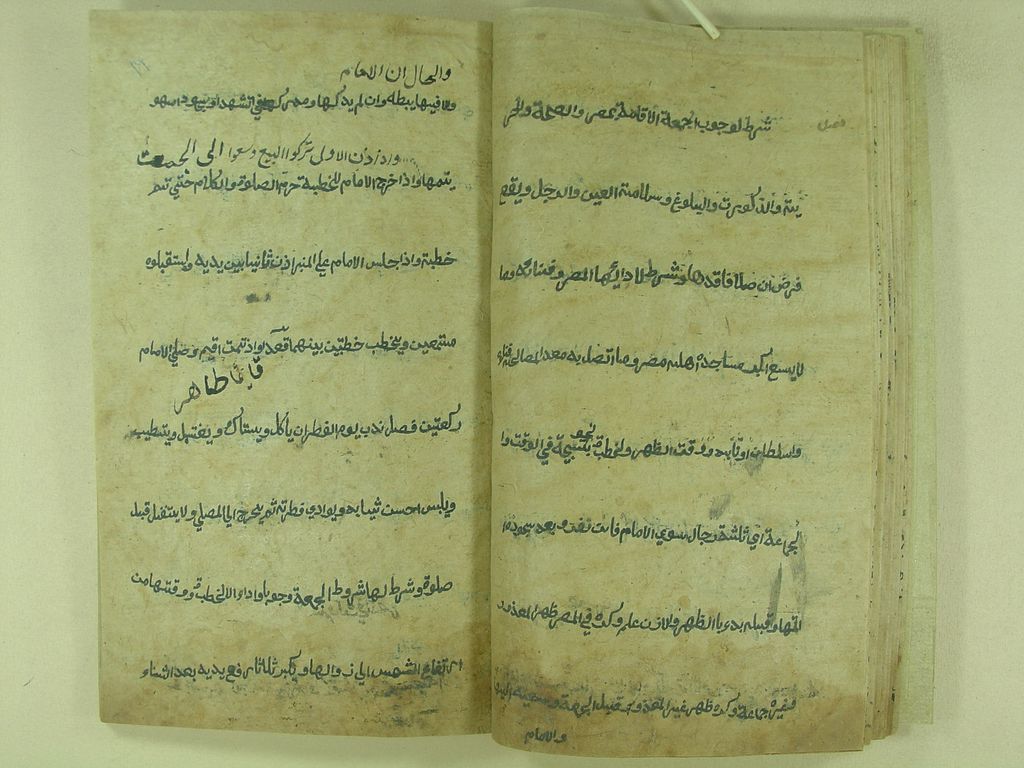 فصل
شرط لوجوب الجمعة الاقامة بمصر والصحة والحر
ية والذكورت والبلوغ وسلامة العين والرجل ويقع
فرض ان صلا فاقدها وشرط لادائها المصر وفنائه وما
لا يسع اكبر مساجده اهله مصر وما اتصل به معد المصالحه فناؤه
والسلطان او نائبه ووقت الظهر والخطبة نحو تسبيحة في الوقت وا
لجماعة اي ثلثة رجال سوي الامام فان نفرو بعد سجوده ا
تمها وقبله بدء با الظهر والاذن عام وكره في المصر ظهر المعذور
وغيره جماعة وكره ظهر غير المعذور قبل الجمعة وسعيه اليها
والامام
والحال ان الامام
ولا فيها يبطله وان لم يدركها ومدركها في التشهد او سجود السهو
واذا اذن الاول تركوا البيع وسعوا الى الجمعة
يتمها واذا خرج الامام للخطبة حرم الصلوة والكلام حتي تتم
خطبة واذا جلس الامام علي المنبر اذن ثانيا بين يديه واستقبلوه
مستمعين ويخطب خطبتين بينهما قعدة واذ تمت اقيم وصلي الامام
قائما طاهر
ركعتين فصل ندب يوم الفطر ان يأكل ويستاك ويغتسل ويتطيب
ويلبس احسن ثيابه ويوادي فطرته ثم يخرج الي المصلي ولا يتنفل قبل
صلوة وشرط لها شروط الجمعة وجوبا واداء الا الخطبة ووقتها من
ارتفاع الشمس الي زوالها ويكبر ثلثا رفع يديه بعد الثناء